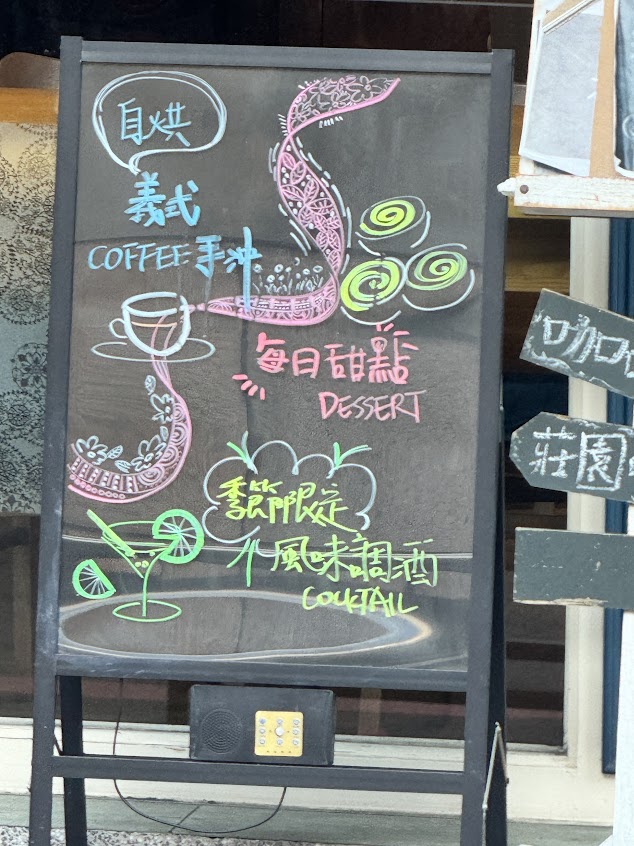 自烘
義式
COFFEE 手沖
每日甜點
DESSERT
季節限定
風味調酒
COCKTAIL
咖
莊園